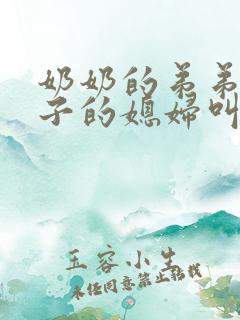 奶奶的弟弟
子的媳妇叫
玉容小生
未经同意禁止转载